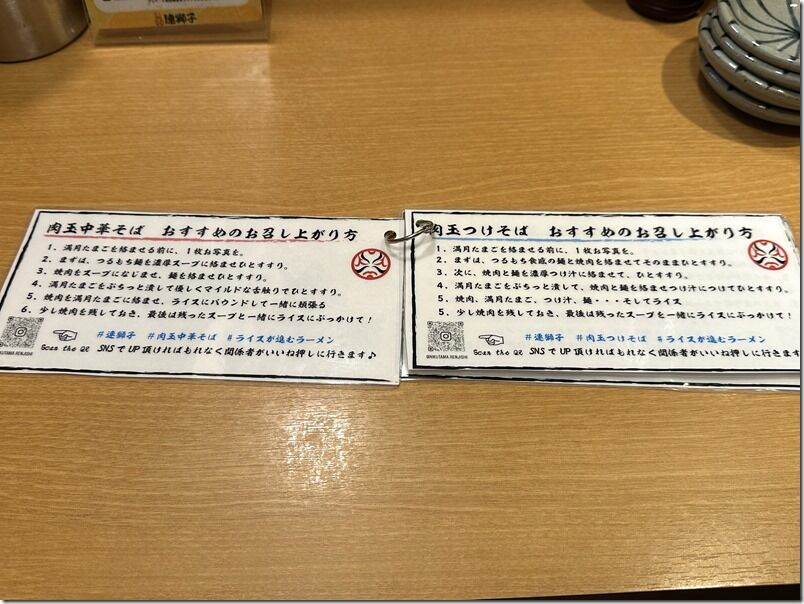 連獅子
肉玉中華そば おすすめのお召し上がり方
1、満月たまごを絡ませる前に、1枚お写真を。
2、まずは、つるもち麺を濃厚スープに絡ませひとすすり。
3、焼肉をスープになじませ、麺を絡ませひとすすり。
4、満月たまごをぷちっと潰して優しくマイルドな舌触りでひとすすり。
5、焼肉を満月たまごに絡ませ、ライスにバウンドして一緒に頬張る
6、少し焼肉を残しておき、最後は残ったスープと一緒にライスにぶっかけて!
#連獅子 #肉玉中華そば #ライスが進むラーメン
Scan the QR SNSでUP頂ければもれなく関係者がいいね押しに行きます♪
NIKUTAMA RENJISHI
肉玉つけそば おすすめのお召し上がり方
1、満月たまごを絡ませる前に、1枚お写真を。
2、まずは、つるもち食感の麺と焼肉を絡ませてそのままひとすすり。
3、次に、焼肉と麺を濃厚つけ汁に絡ませて、ひとすすり。
4、満月たまごをぷちっと潰して、焼肉と麺を絡ませつけ汁につけてひとすすり。
5、焼肉、満月たまご、つけ汁、麺・・・そしてライス
5、少し焼肉を残しておき、最後は残ったスープを一緒にライスにぶっかけて!
#連獅子 #肉玉つけそば #ライスが進むラーメン
Scan the QR SNSでUP頂ければもれなく関係者がいいね押しに行きます
@NIKUTAMA.RENJISHI